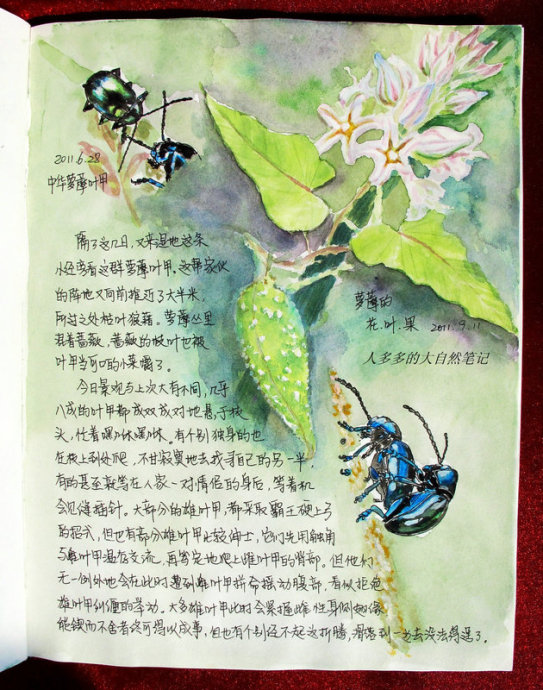 2011.6.28
中华萝藦叶甲
隔了这几日，又来湿地这条
小径旁看这群萝藦叶甲。这帮家伙
的阵地又向前推近了大半米，
所过之处枝叶狼藉。萝藦丛里
混着蔷薇，蔷薇的枝叶也被
叶甲当可口的小菜嚼了。
今日景观与上次大有不同，几乎
八成的叶甲都成双成对地悬于枝
头，忙着嘿咻嘿咻。有个别独身的也
在枝上到处爬，不甘寂寞地去找寻自己的另一半，
有的甚至凝等在人家一对情侣的身后，等着机
会见缝插针。大部分的雄叶甲，都采取霸王硬上弓
的招式，但也有部分雄叶甲比较绅士，它们先用触角
与雌叶甲温存交流，再笃定地爬上雌叶甲的背部。但他们
无一例外地会在此时遭到雌叶甲拼命摇动腹部，看似拒绝
雄叶甲纠缠的举动。大多雄叶甲此时会紧抱雌性身侧
能锲而不舍者终可得以成事，但也有个别经不起这折腾，滑落到一边去没法得逞了。
萝藦的
花.叶.果 2011.9.11
人多多的大自然笔记